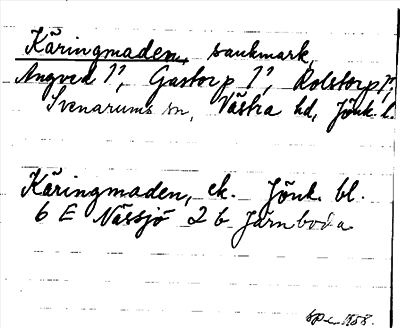 Käringmaden, sankmark,
Angved 1¹, Gastorp 1¹, Rolstorp 1¹,
Svenarums sn, Västra hd, Jönk. l.
Käringmaden, ek. Jönk. bl.
6 E Nässjö 2 b Järnboda
1958.